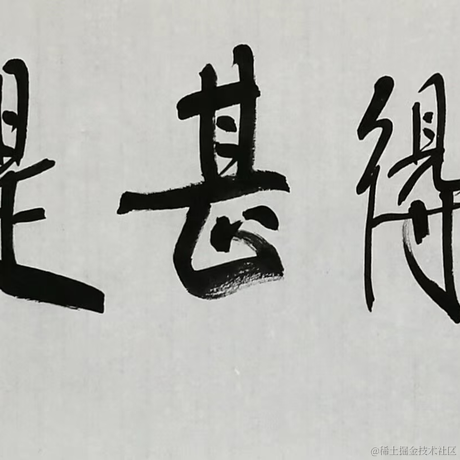 是甚得
@稀土掘金技术社区